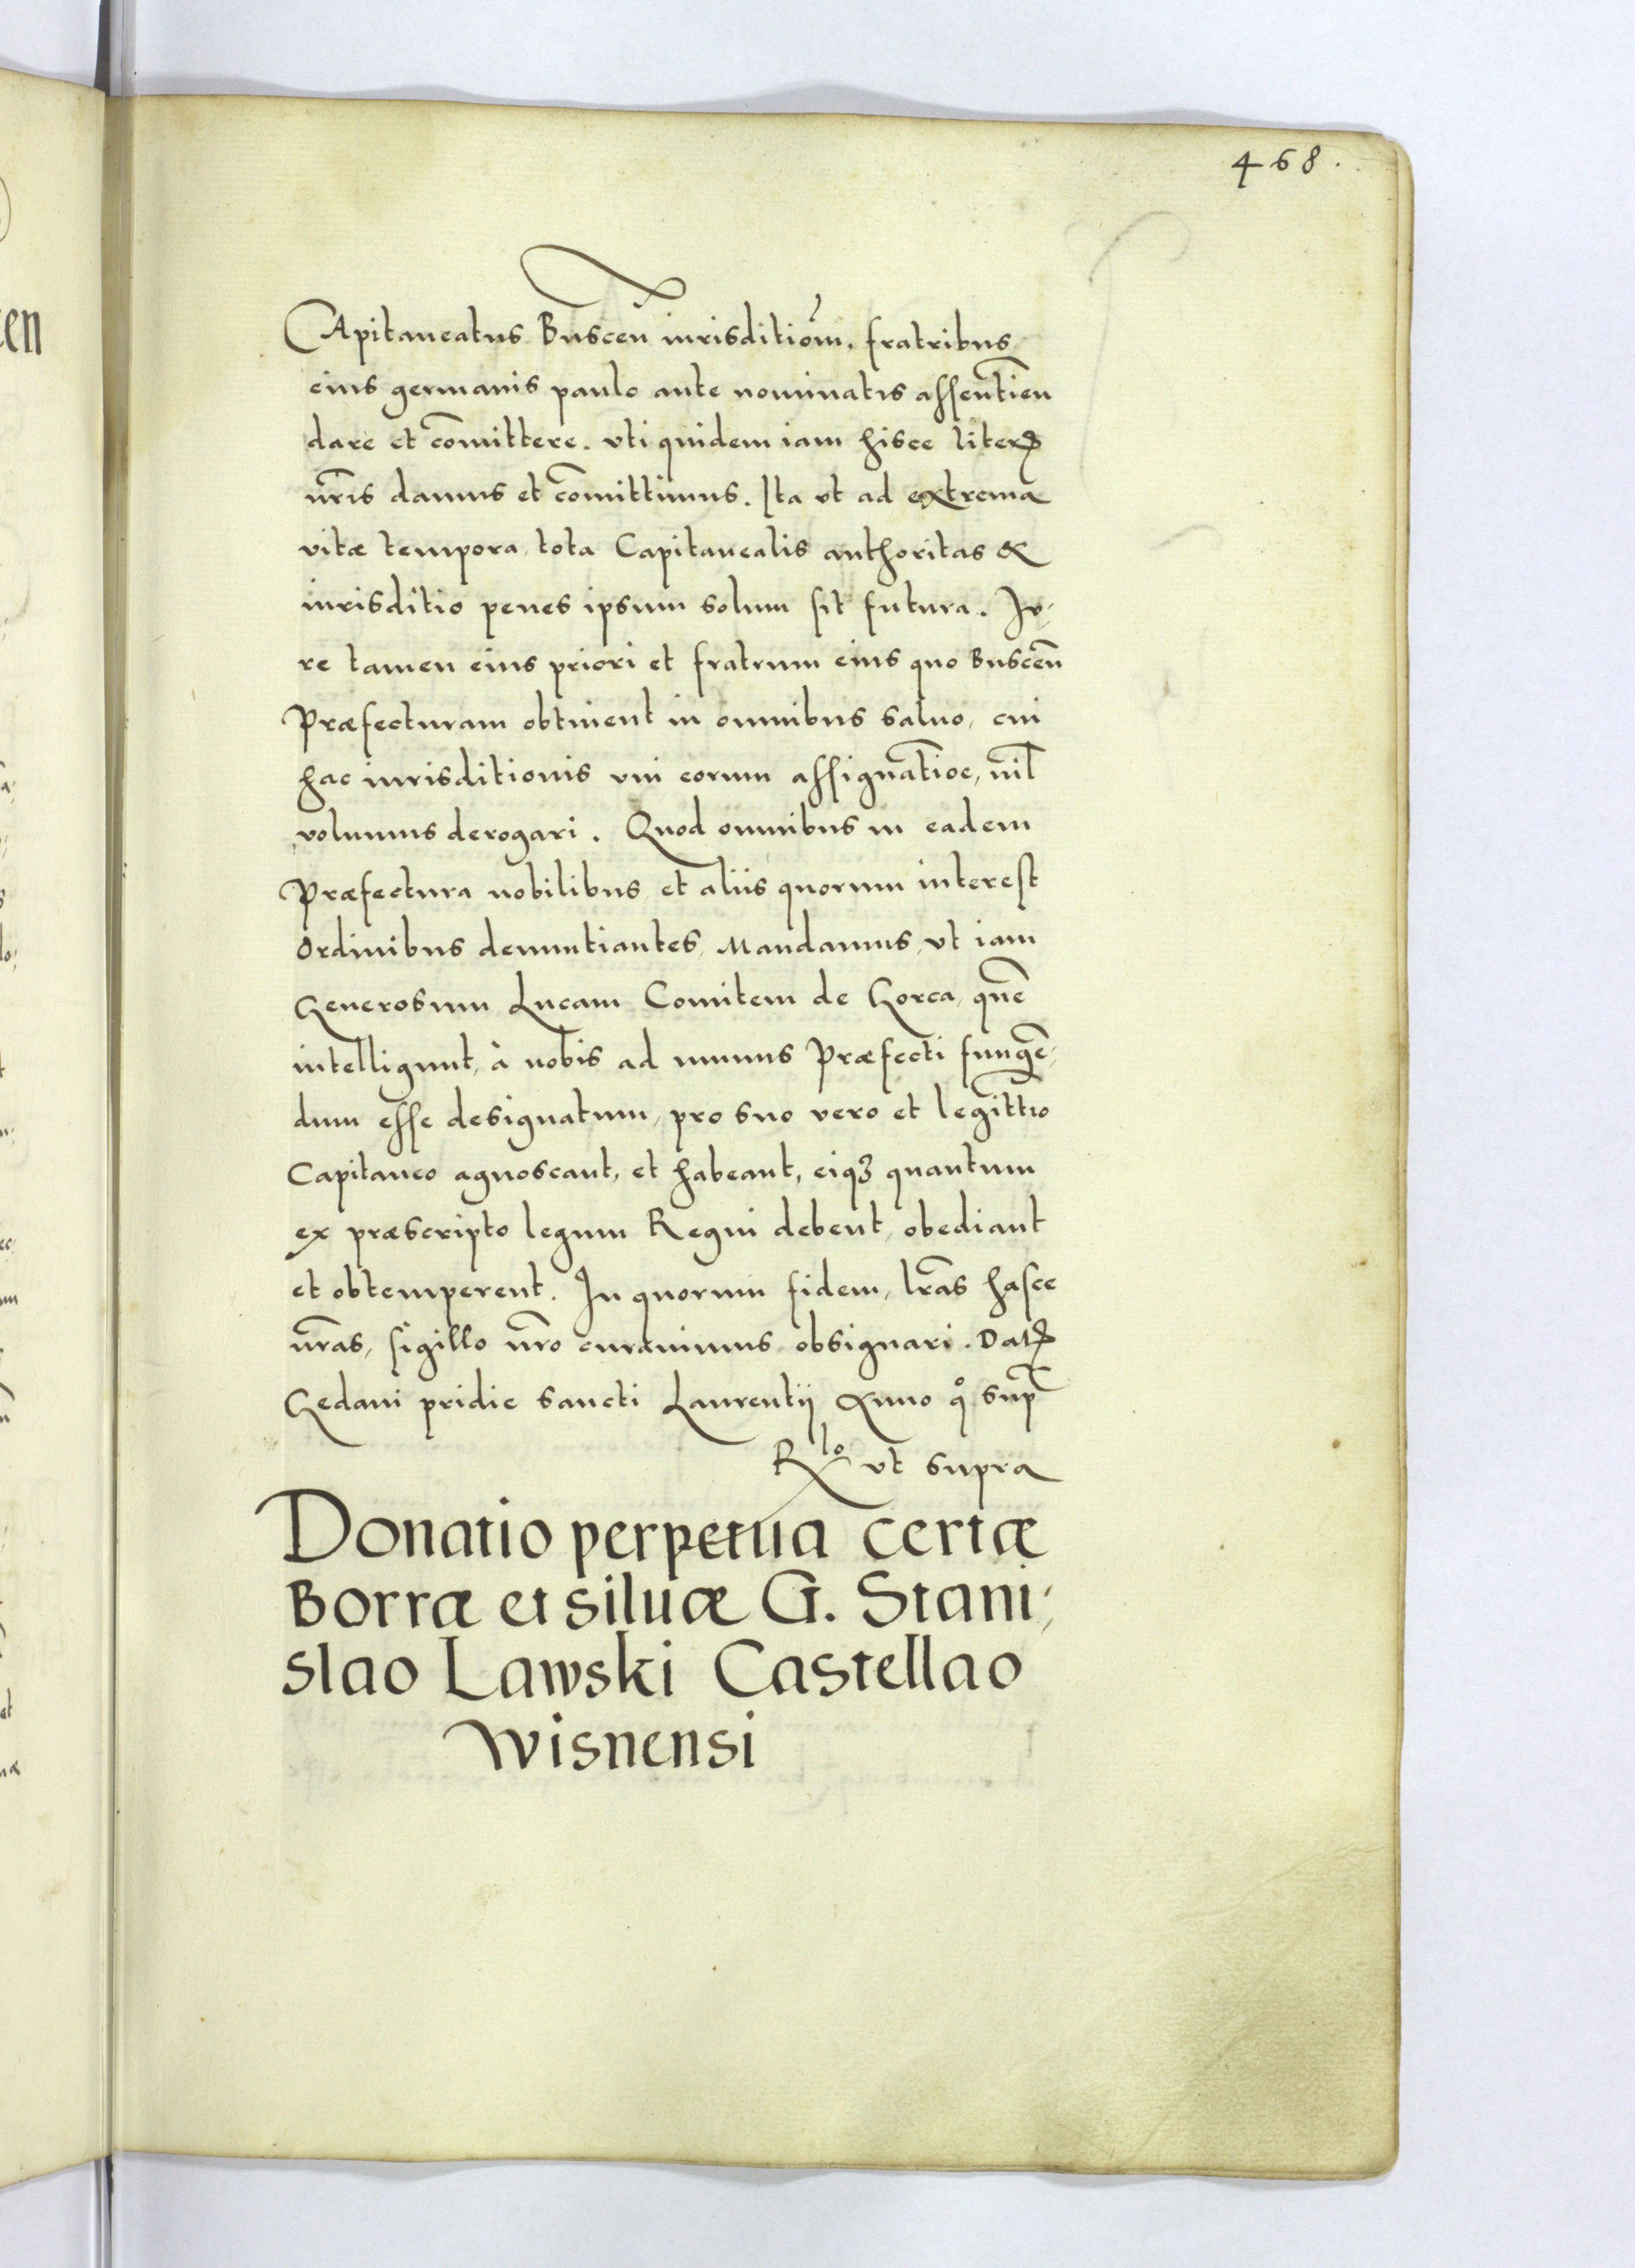 468.
CApitaneatus Buscen̄ iurisditiōm, fratribus
eius germanis paulo ante nominatis assentien̄
dare et cōmittere. vti quidem iam hisce literꝭ
nr̄is damus et cōmittimus. Ita vt ad extrema
vitæ tempora, tota Capitanealis authoritas &
iurisditio penes ipsum solum sit futura. Iu⸗
re tamen eius priori et fratrum eius quo Buscen̄
Præfecturam obtinent in omnibus saluo, cui
hac iurisditionis vni eorum assignatīoe, nīl
volumus derogari. Quod omnibus in eadem
Præfectura nobilibus et aliis quorum interest
Ordinibus denuntiantes, Mandamus, vt iam
Generosum Lucam Comitem de Gorca, quē
intelligunt, à nobis ad munus Præfecti fungē⸗
dum esse designatum, pro suo vero et legittīo
Capitaneo agnoscant, et habeant, eiqꝫ quantum
ex præscripto legum Regni debent, obediant
et obtemperent. In quorum fidem, lr̄as hasce
nr̄as, sigillo nr̄o curauimus obsignari. Datꝭ
Gedani pridie sancti Laurentij Anno qͦ sup̄
Rlo vt supra
Donatio perpetua certæ
Borræ et siluæ G. Stani⸗
slao Lawski Castellao
Wisnensi